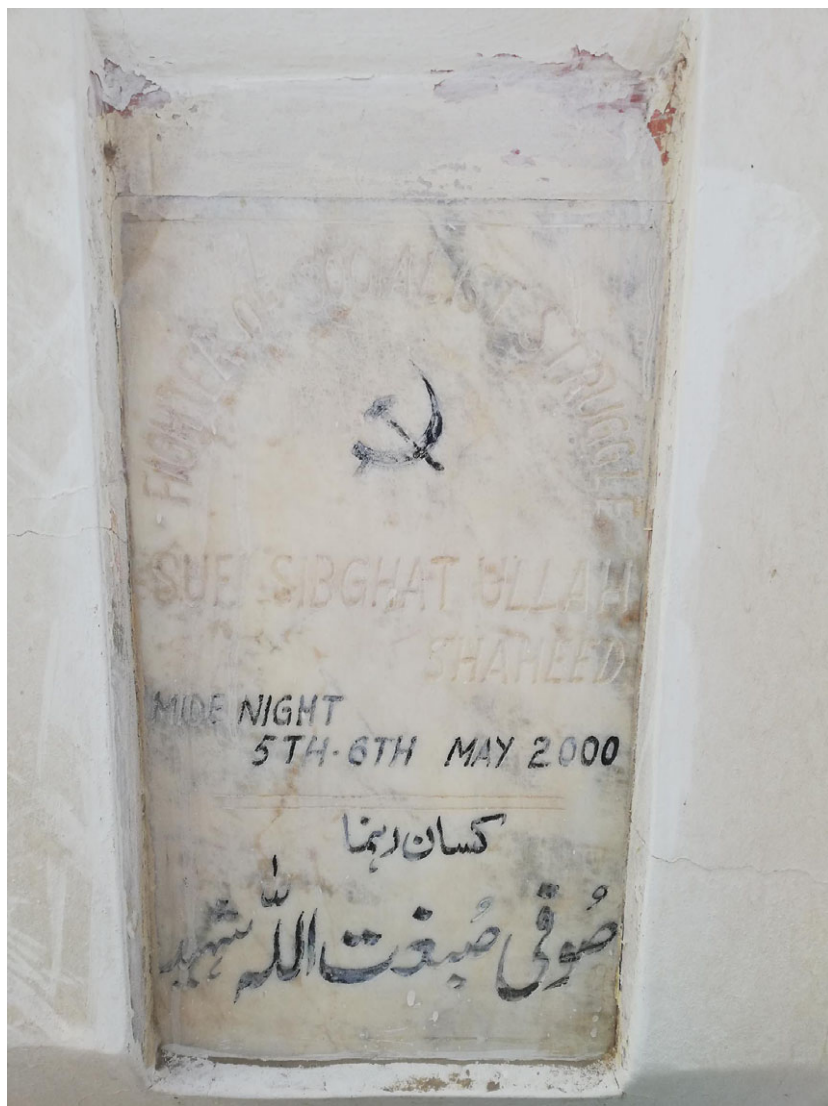 FIGHTER OF SOCIALIST STRUGGLE
SUFI SIBGHAT ULLAH
SHAHEED
MIDE NIGHT
5TH-6TH MAY 2000
کسان رہنما
صُوفی صُبغت اللّٰہ شہید